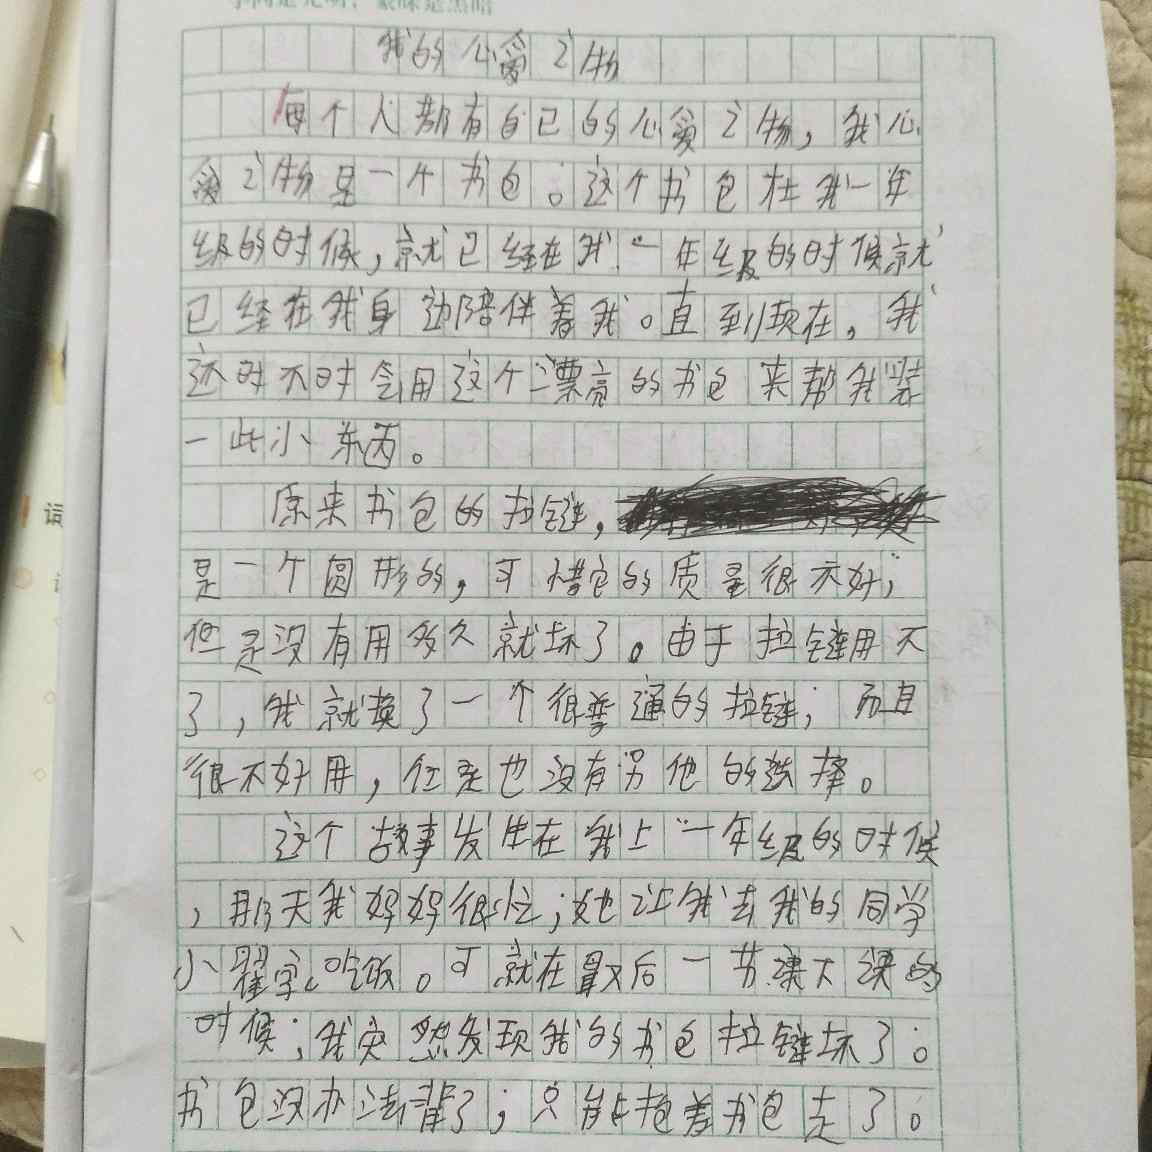 我的心爱之物
每个人都有自己的心爱之物，我心
爱之物是一个书包。这个书包在我一年
级的时候，就已经在我一年级的时候就
已经在我身边陪伴着我。直到现在，我
还时不时会用这个漂亮的书包来帮我装
一些小东西。
原来书包的拉链，
是一个圆形的，可惜它的质量很不好，
但是没有用多久就坏了。由于拉链用不
了，我就换了一个很普通的拉链；而且
很不好用，但是也没有另他的选择。
这个故事发生在我上一年级的时候
，那天我妈妈很忙；她让我去我的同学
小翟家吃饭。可就在最后一节课下课的
时候；我突然发现我的书包拉链坏了。
书包没办法背了；只能抱着书包走了。
词